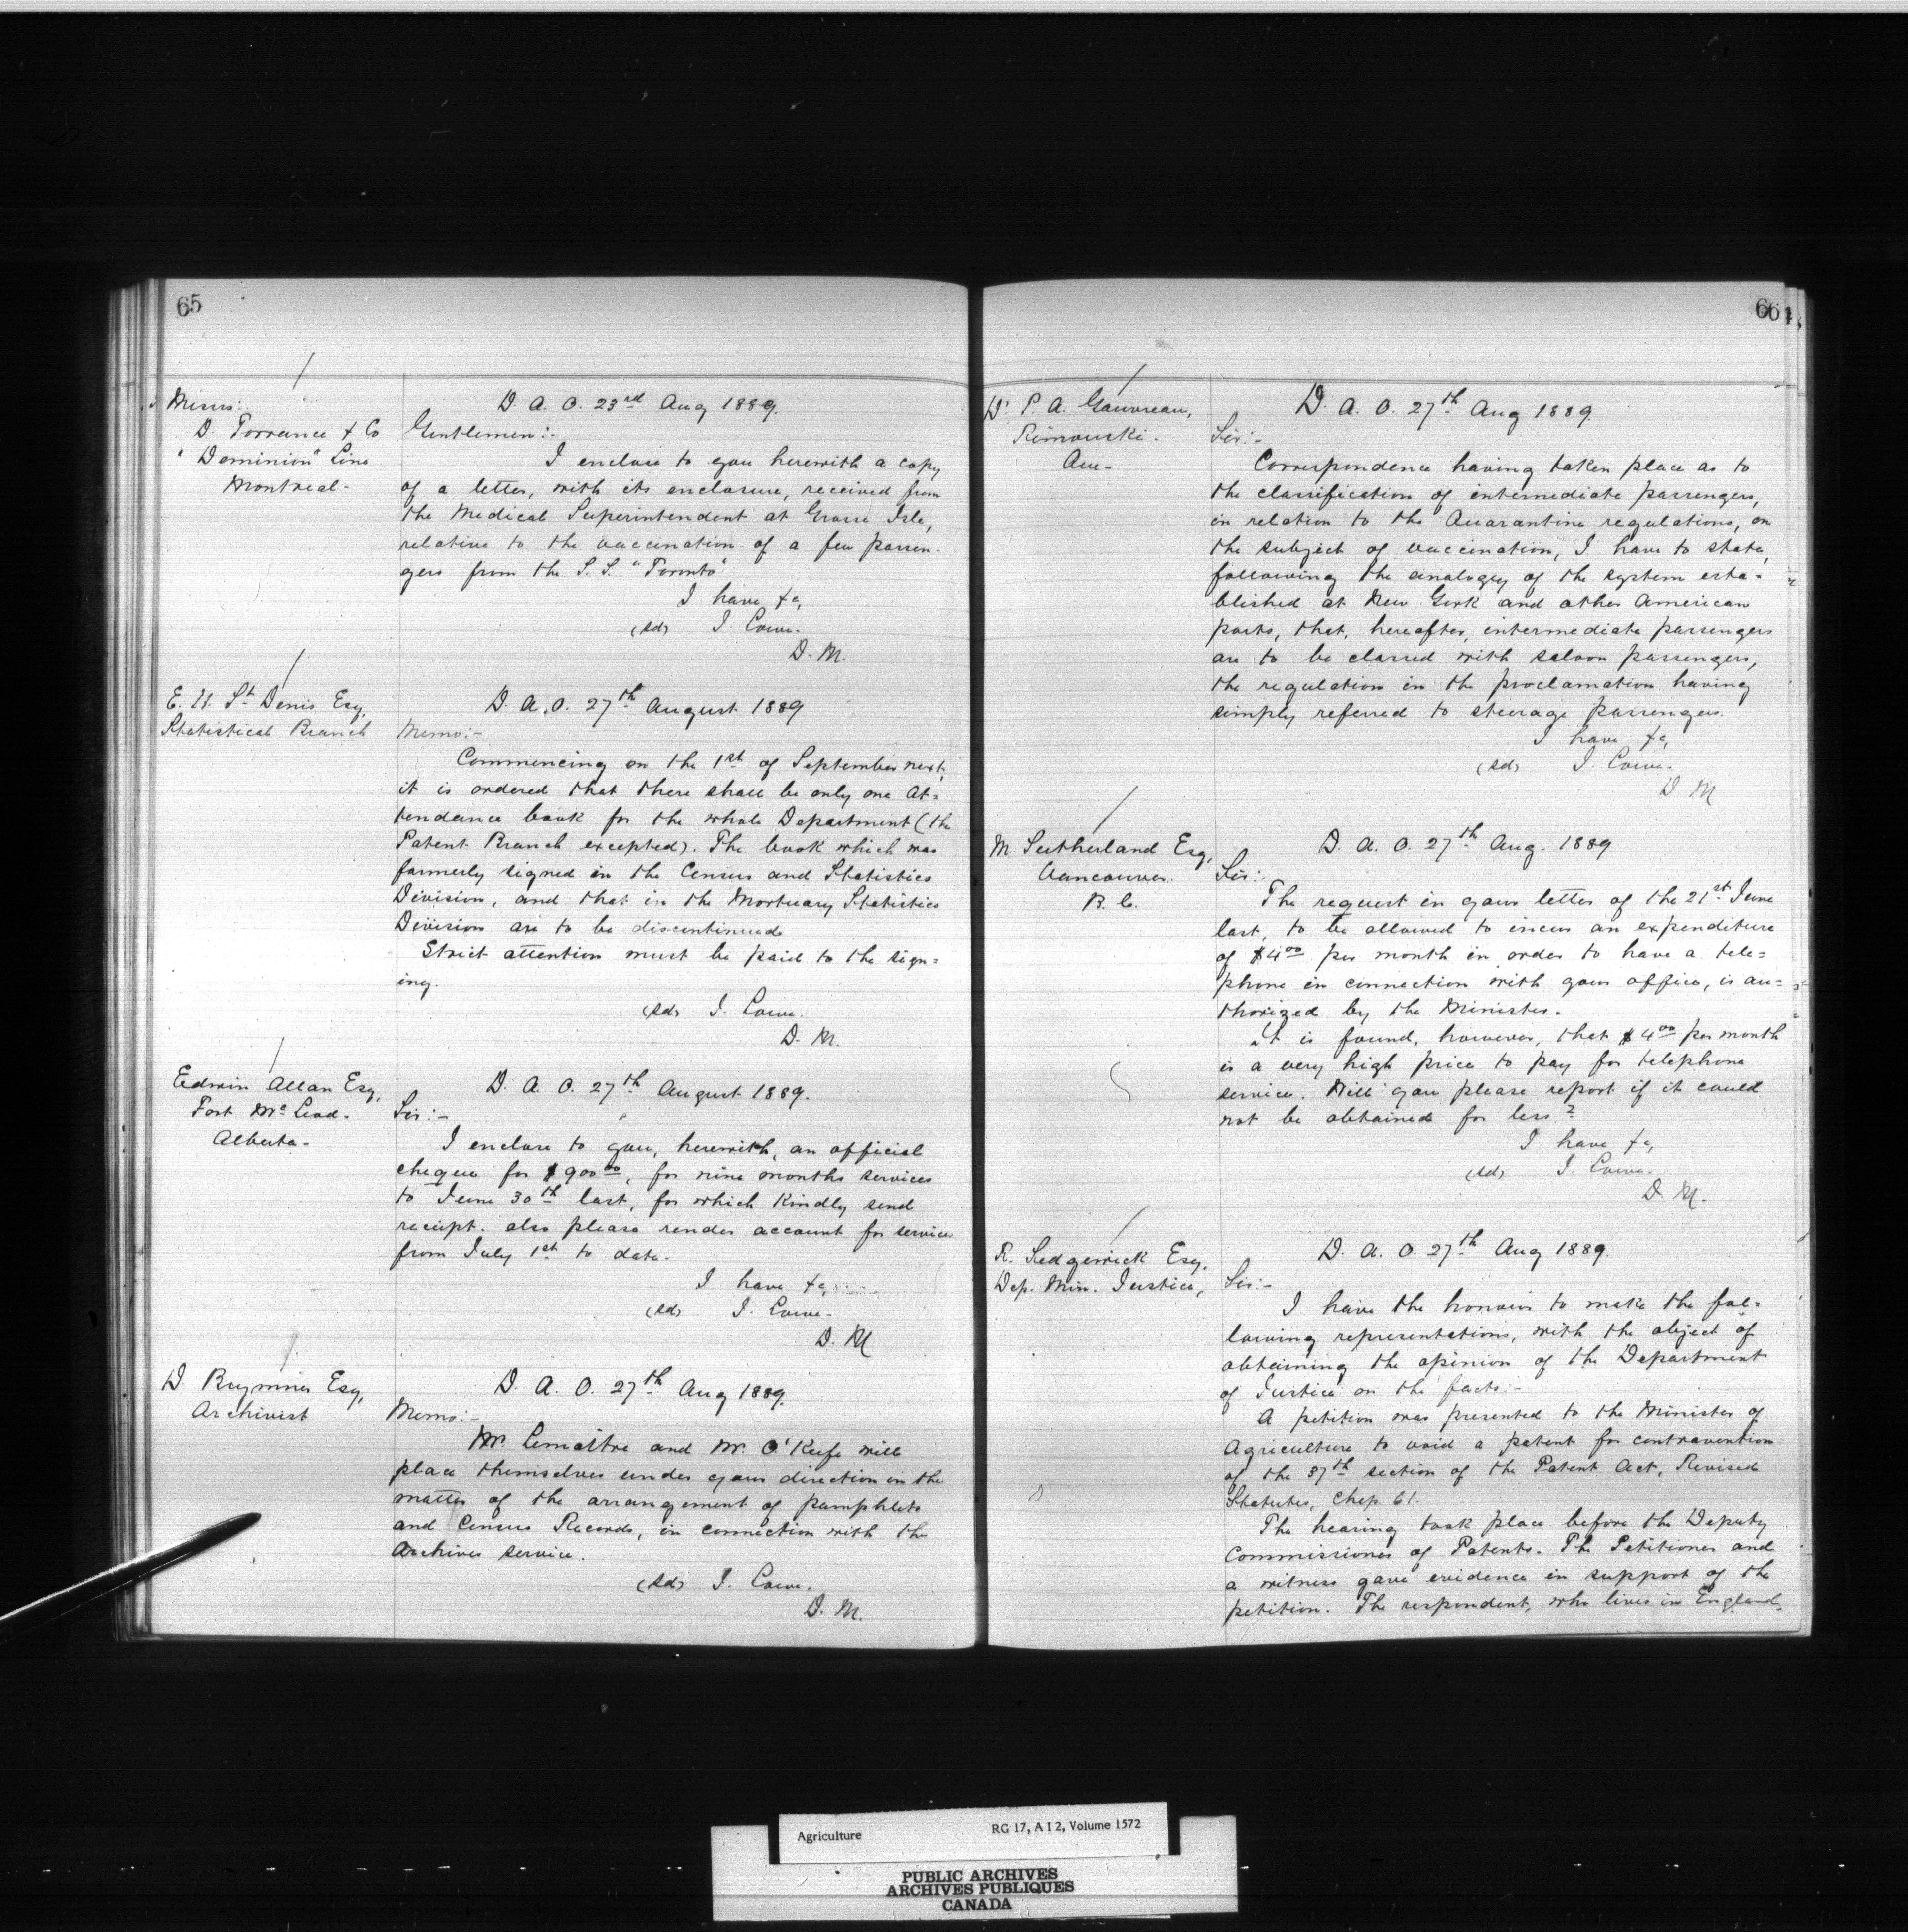 65
Messrs:-
D. Torrance & Co
"Dominion" Line
Montreal-
D. A. O. 23rd Aug 1889.
Gentlemen:-
I enclose to you herewith a copy
of a letter, with its enclosure, received from
the Medical Superintendent at Grosse Isle,
relative to the vaccination of a few passen-
gers from the S. S. "Toronto"
I have &c,
(sd) J. Lowe.
D. M.
E. H. St Denis Esq,
Statistical Branch
D. A. O. 27th August 1889
Memo:-
Commencing on the 1st of September next,
it is ordered that there shall be only one at=
tendance book for the whole Department (the
Patent Branch excepted). The book which was
formerly signed in the Census and Statistics
Division, and that in the Mortuary Statistics
Division are to be discontinued
Strict attention must be paid to the sign=
ing.
(sd) J. Lowe.
D. M.
Edwin Allan Esq,
Fort McLeod.
Alberta-
D. A. O. 27th August 1889.
Sir:-
I enclose to you, herewith, an official
cheque for $900 00, for nine months services
to June 30th last, for which kindly send
receipt. also please render account for services
from July 1st to date.
I have &c,
(sd) J. Lowe-
D. M
D. Brymner Esq,
Archivist
D. A. O. 27th Aug 1889.
Memo:-
Mr. Lemaître and Mr. O'Keefe will
place themselves under your direction in the
matter of the arrangement of pamphlets
and Census Records, in connection with the
Archives service.
(sd) J. Lowe.
D. M.
66
Dr P. A. Gauvreau,
Rimouski.
Que-
D. A. O. 27th Aug 1889.
Sir:-
Correspondence having taken place as to
the classification of intermediate passengers,
in relation to the Quarantine regulations, on
the subject of vaccination, I have to state,
following the analogy of the system esta=
blished at New York and other American
ports, that, hereafter, intermediate passengers
are to be classed with saloon passengers,
the regulation in the proclamation having
simply referred to steerage passengers.
I have &c,
(sd) J. Lowe.
D. M
M. Sutherland Esq,
Vancouver.
B. C.
D. A. O. 27th Aug. 1889
Sir:-
The request in your letter of the 21st June
last, to be allowed to incur an expenditure
of $4 00 per month in order to have a tele=
phone in connection with your office, is au=
thorized by the Minister.
It is found, however, that $4 00 per month
is a very high price to pay for telephone
service. Will you please report if it could
not be obtained for less?
I have &c,
(sd) J. Lowe.
D. M.
R. Sedgewick Esq,
Dep. Min. Justice,
D. A. O. 27th Aug 1889.
Sir:-
I have the honour to make the fol=
lowing representations, with the object of
obtaining the opinion of the Department
of Justice on the facts:-
A petition was presented to the Minister of
Agriculture to void a patent for contravention
of the 37th section of the Patent Act, Revised
Statutes, Chap. 61.
The hearing took place before the Deputy
Commissioner of Patents. The Petitioner and
a witness gave evidence in support of the
petition. The respondent, who lives in England,
Agriculture RG 17, A I 2, Volume 1572
PUBLIC ARCHIVES
ARCHIVES PUBLIQUES
CANADA